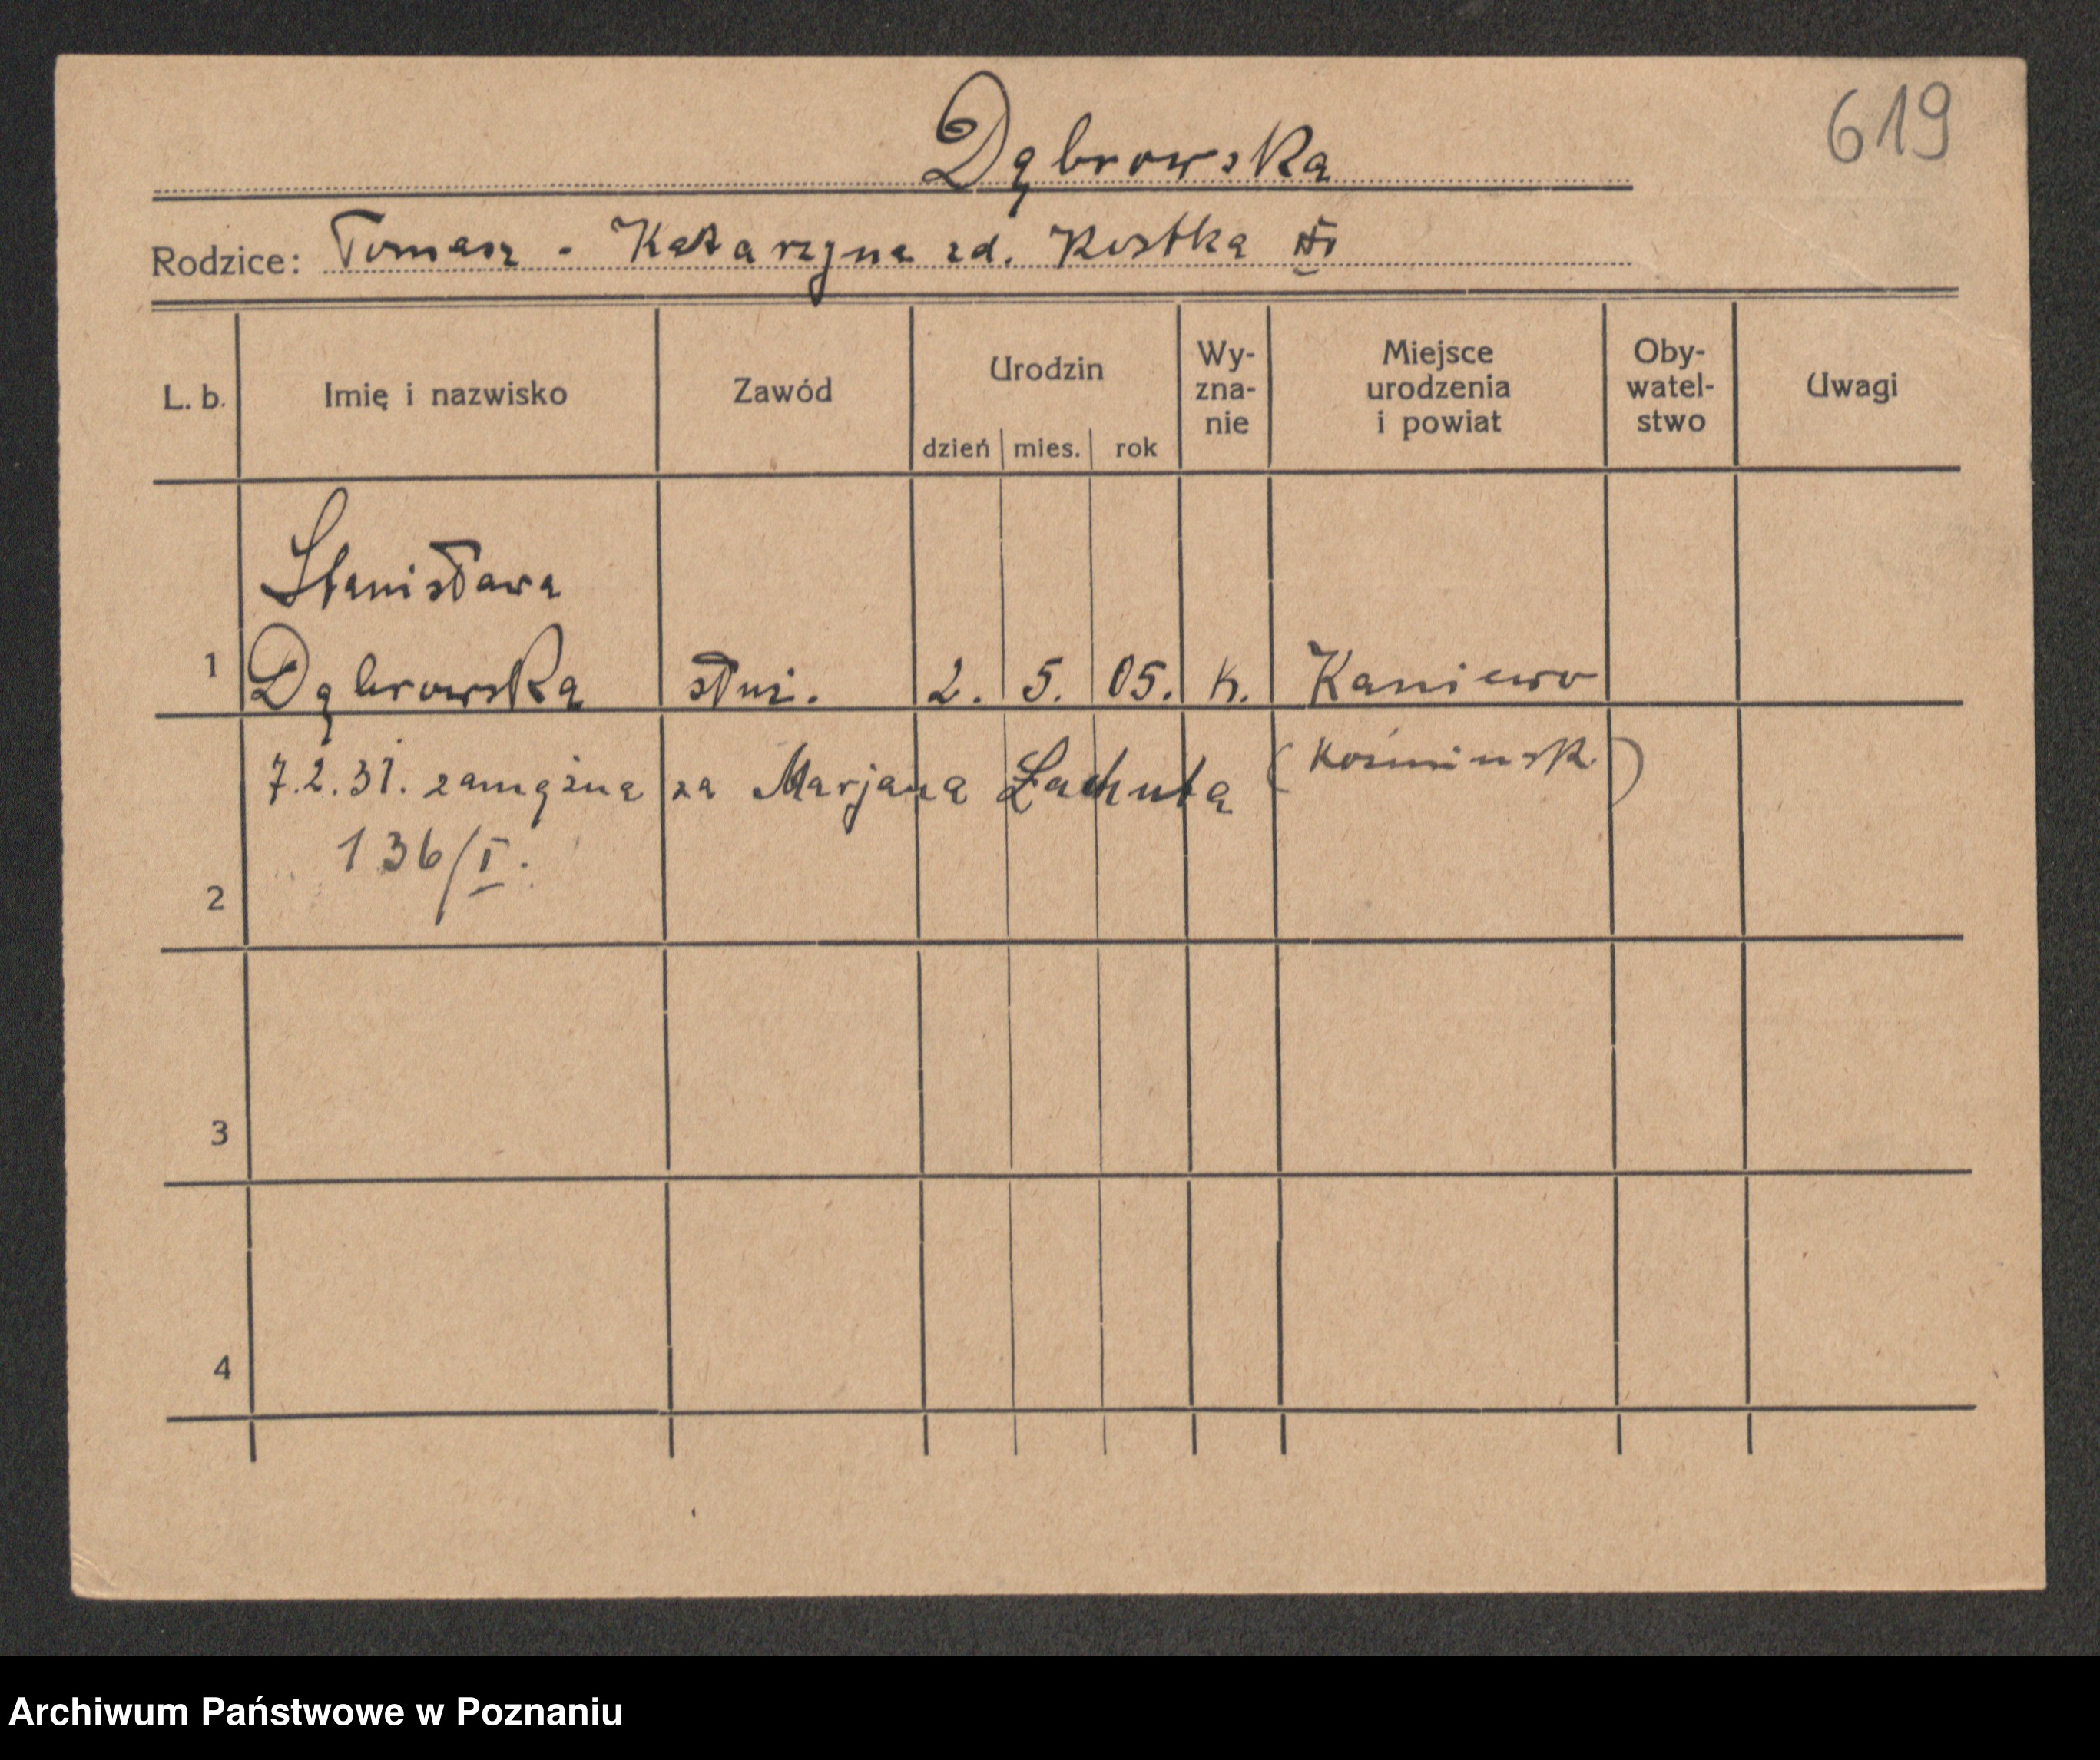 619
Dąbrowska
Rodzice: Tomasz - Katarzyna zd. Kostka
L. b. Imię i nazwisko Zawód Urodzin dzień mies. rok Wy-zna-nie Miejsce urodzenia i powiat Oby-watel-stwo Uwagi
Stanisława
1 Dąbrowska służ. 2. 5. 05. k. Kaniewo
(Koźminsk.)
7.2.31. zamężna za Marjana Łachuta
136/I.
2
3
4
Archiwum Państwowe w Poznaniu